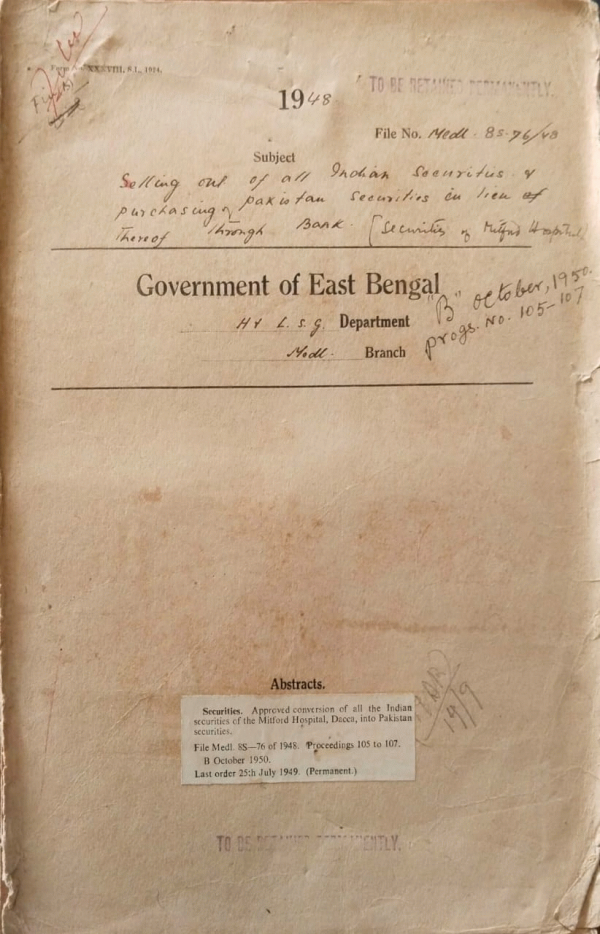 XXXVIII, S I., 1924.
TO BE RETAINED PERMANENTLY.
1948
File No. Medl. 8S-76/48
Subject
Selling out of all Indian Securities &
purchasing of Pakistan Securities in lieu of
thereof through Bank. [Securities of Mitford Hospital]
Government of East Bengal
H & L.S.G. Department
Medl. Branch
"B" October, 1950.
progs. No. 105-107
Abstracts.
Securities. Approved conversion of all the Indian
securities of the Mitford Hospital, Dacca, into Pakistan
securities.
File Medl. 8S—76 of 1948. Proceedings 105 to 107.
B October 1950.
Last order 25th July 1949. (Permanent.)
19/9
TO BE RETAINED PERMANENTLY.